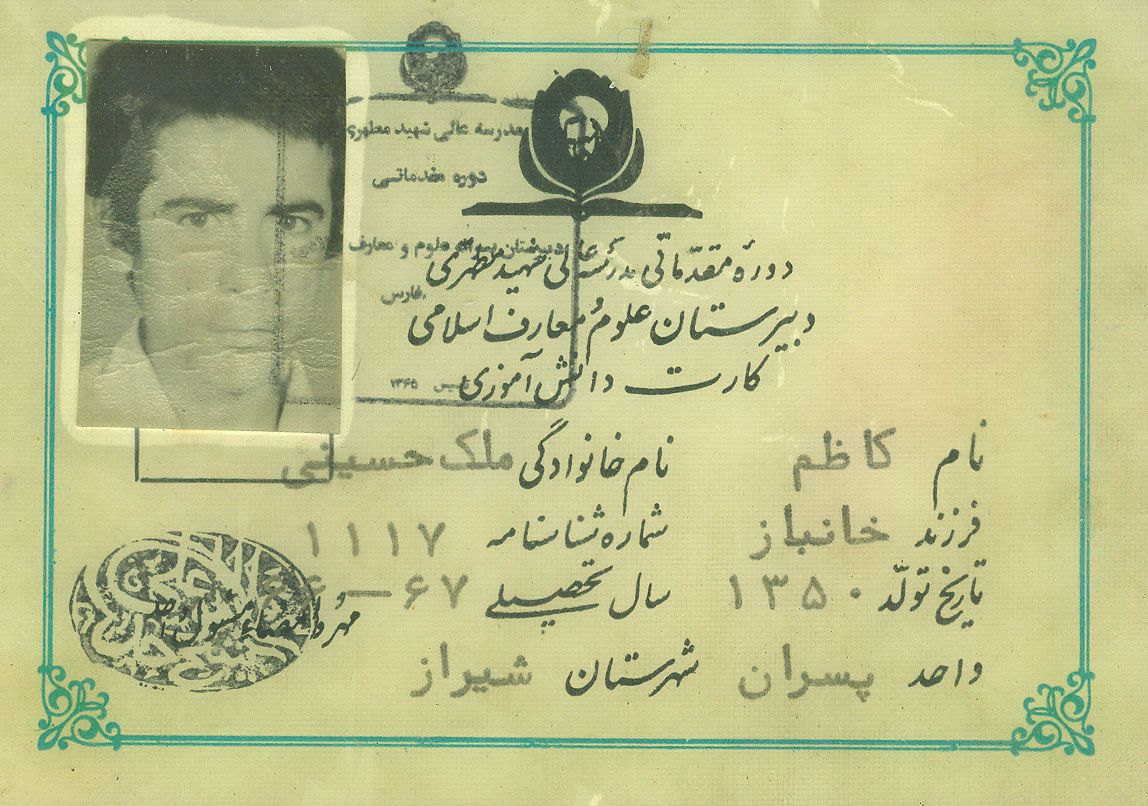 مدرسه عالی شهید مطهری
دوره مقدماتی
دبیرستان علوم و معارف
فارس
تاسیس ۱۳۶۵
دورهٔ مقدّماتی مدرسهٔ عالی شهید مطهّری
دبیرستان علوم و معارف اسلامی
کارت دانش آموزی
نام کاظم نام خانوادگی ملک حسینی
فرزند خانباز شماره شناسنامه ۱۱۱۷
تاریخ تولّد ۱۳۵۰ سال تحصیلی ۶۷—۶۶
واحد پسران شهرستان شیراز
مهر و امضاء مسئول واحد